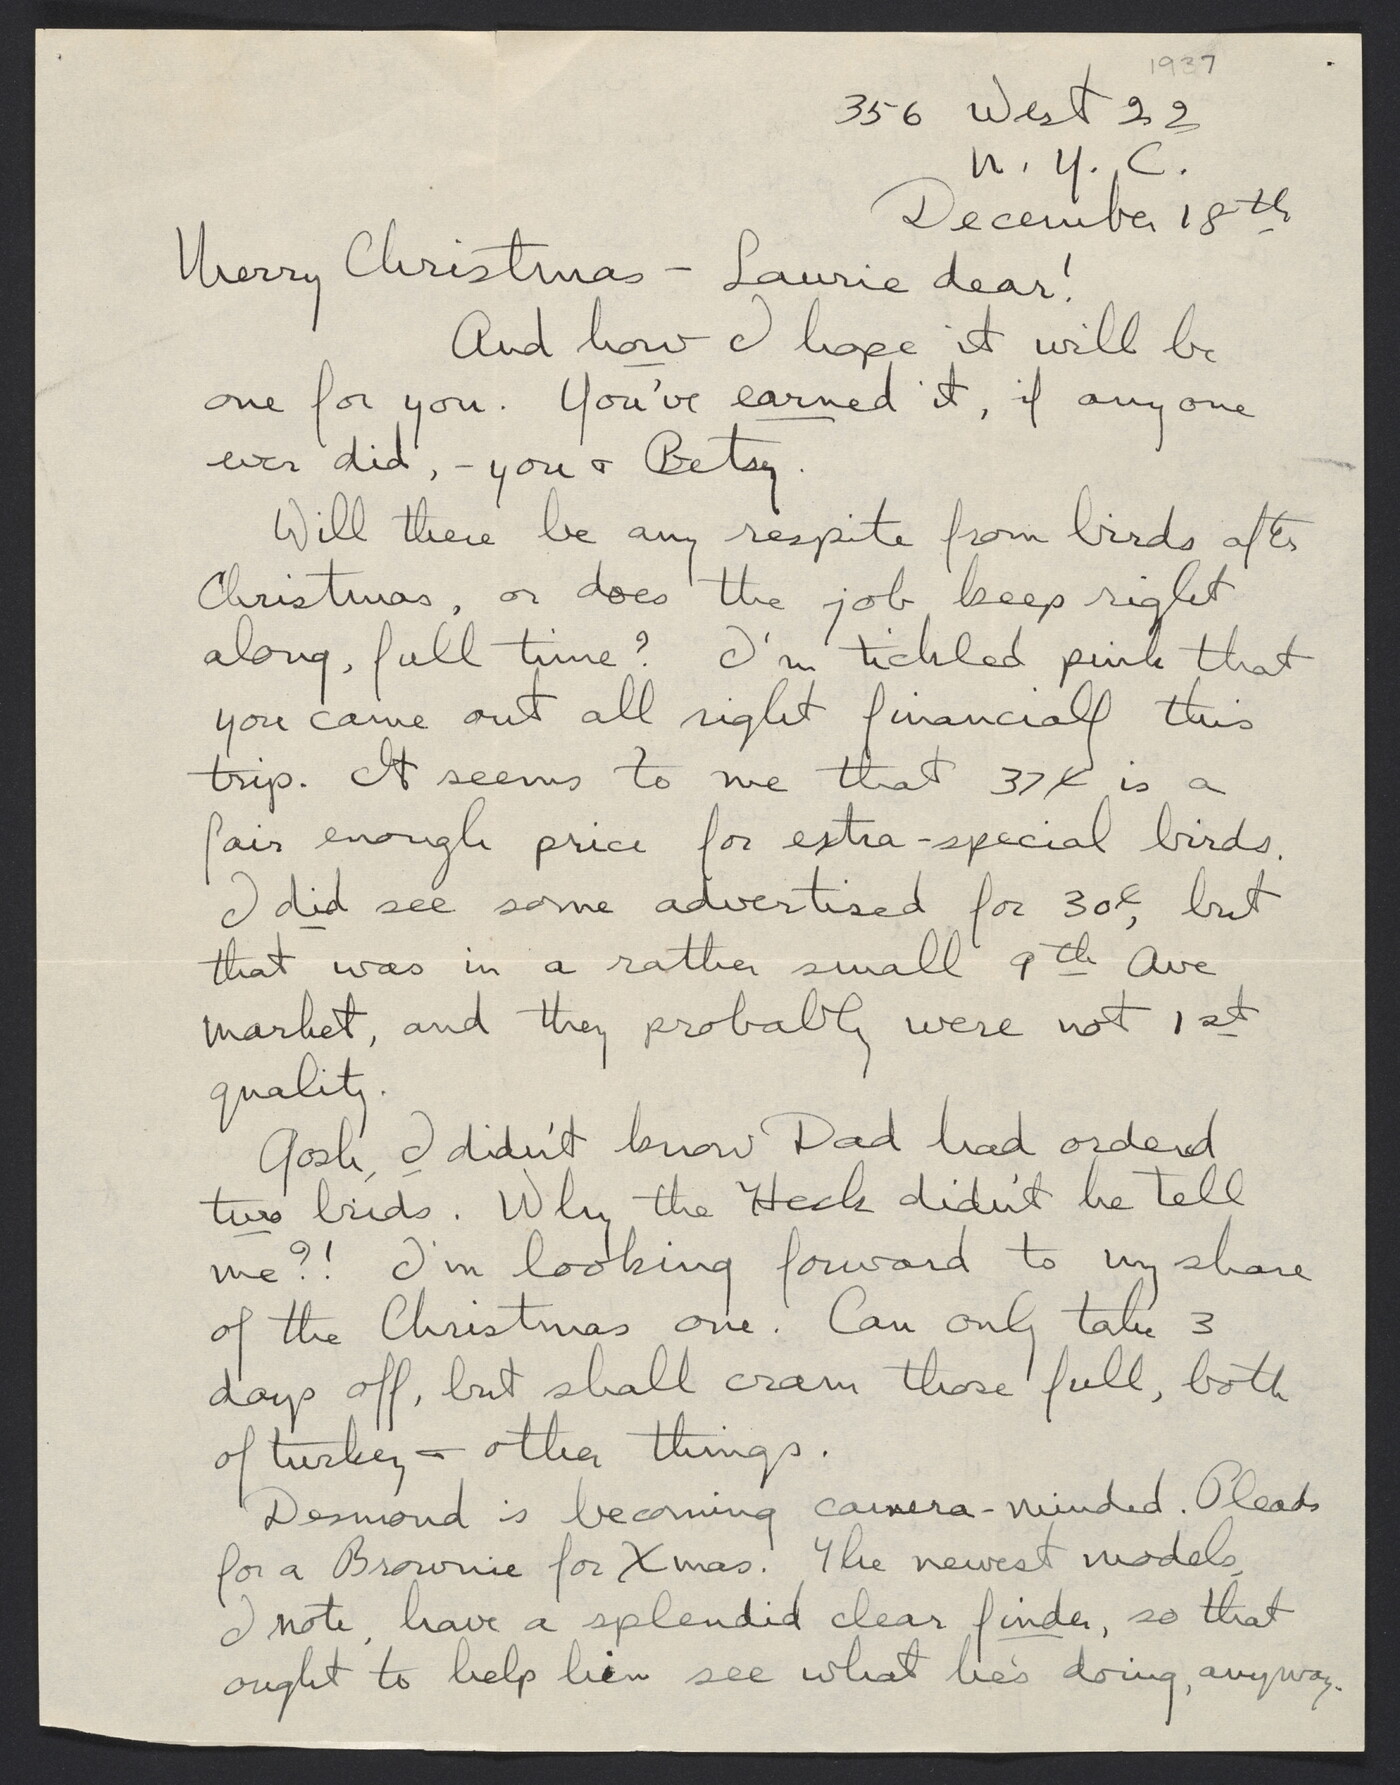 1937
356 West 22
N.Y.C.
December 18th
Merry Christmas - Laurie dear!
And how I hope it will be
one for you. You've earned it, if anyone
ever did, - you & Betsy.
Will there be any respite from birds after
Christmas, or does the job keep right
along, full time? I'm tickled pink that
you came out all right financially this
trip. It seems to me that 37¢ is a
fair enough price for extra-special birds.
I did see some advertised for 30¢, but
that was in a rather small 9th Ave
market, and they probably were not 1st
quality.
Gosh, I didn't know Dad had ordered
two birds. Why the Heck didn't he tell
me?! I'm looking forward to my share
of the Christmas one. Can only take 3
days off, but shall cram those full, both
of turkey & other things.
Desmond is becoming camera-minded. Pleads
for a Brownie for Xmas. The newest models,
I note, have a splendid clear finder, so that
ought to help him see what he's doing, anyway.